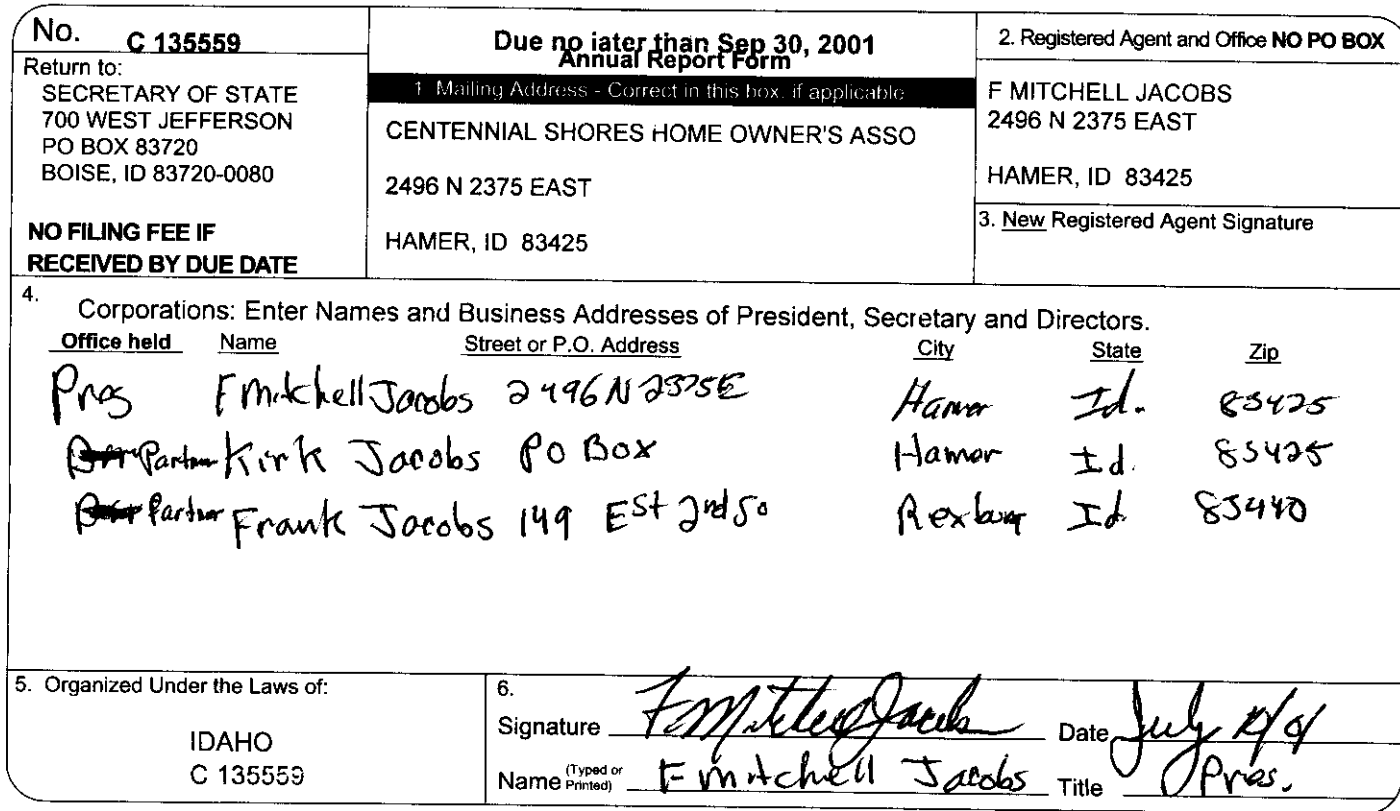 No. C 135559
Return to:
SECRETARY OF STATE
700 WEST JEFFERSON
PO BOX 83720
BOISE, ID 83720-0080
NO FILING FEE IF
RECEIVED BY DUE DATE
Due no later than Sep 30, 2001
Annual Report Form
1. Mailing Address - Correct in this box, if applicable
CENTENNIAL SHORES HOME OWNER'S ASSO
2496 N 2375 EAST
HAMER, ID 83425
2. Registered Agent and Office NO PO BOX
F MITCHELL JACOBS
2496 N 2375 EAST
HAMER, ID 83425
3. New Registered Agent Signature
4. Corporations: Enter Names and Business Addresses of President, Secretary and Directors.
Office held Name Street or P.O. Address City State Zip
Pres F Mitchell Jacobs 2496 N 2375 E Hamer Id. 83425
Partner Kirk Jacobs PO Box Hamer Id. 83425
Partner Frank Jacobs 149 Est 2nd So Rexburg Id. 83440
5. Organized Under the Laws of:
IDAHO
C 135559
6.
Signature F Mitchell Jacobs Date July
Name (Typed or Printed) F Mitchell Jacobs Title Pres.